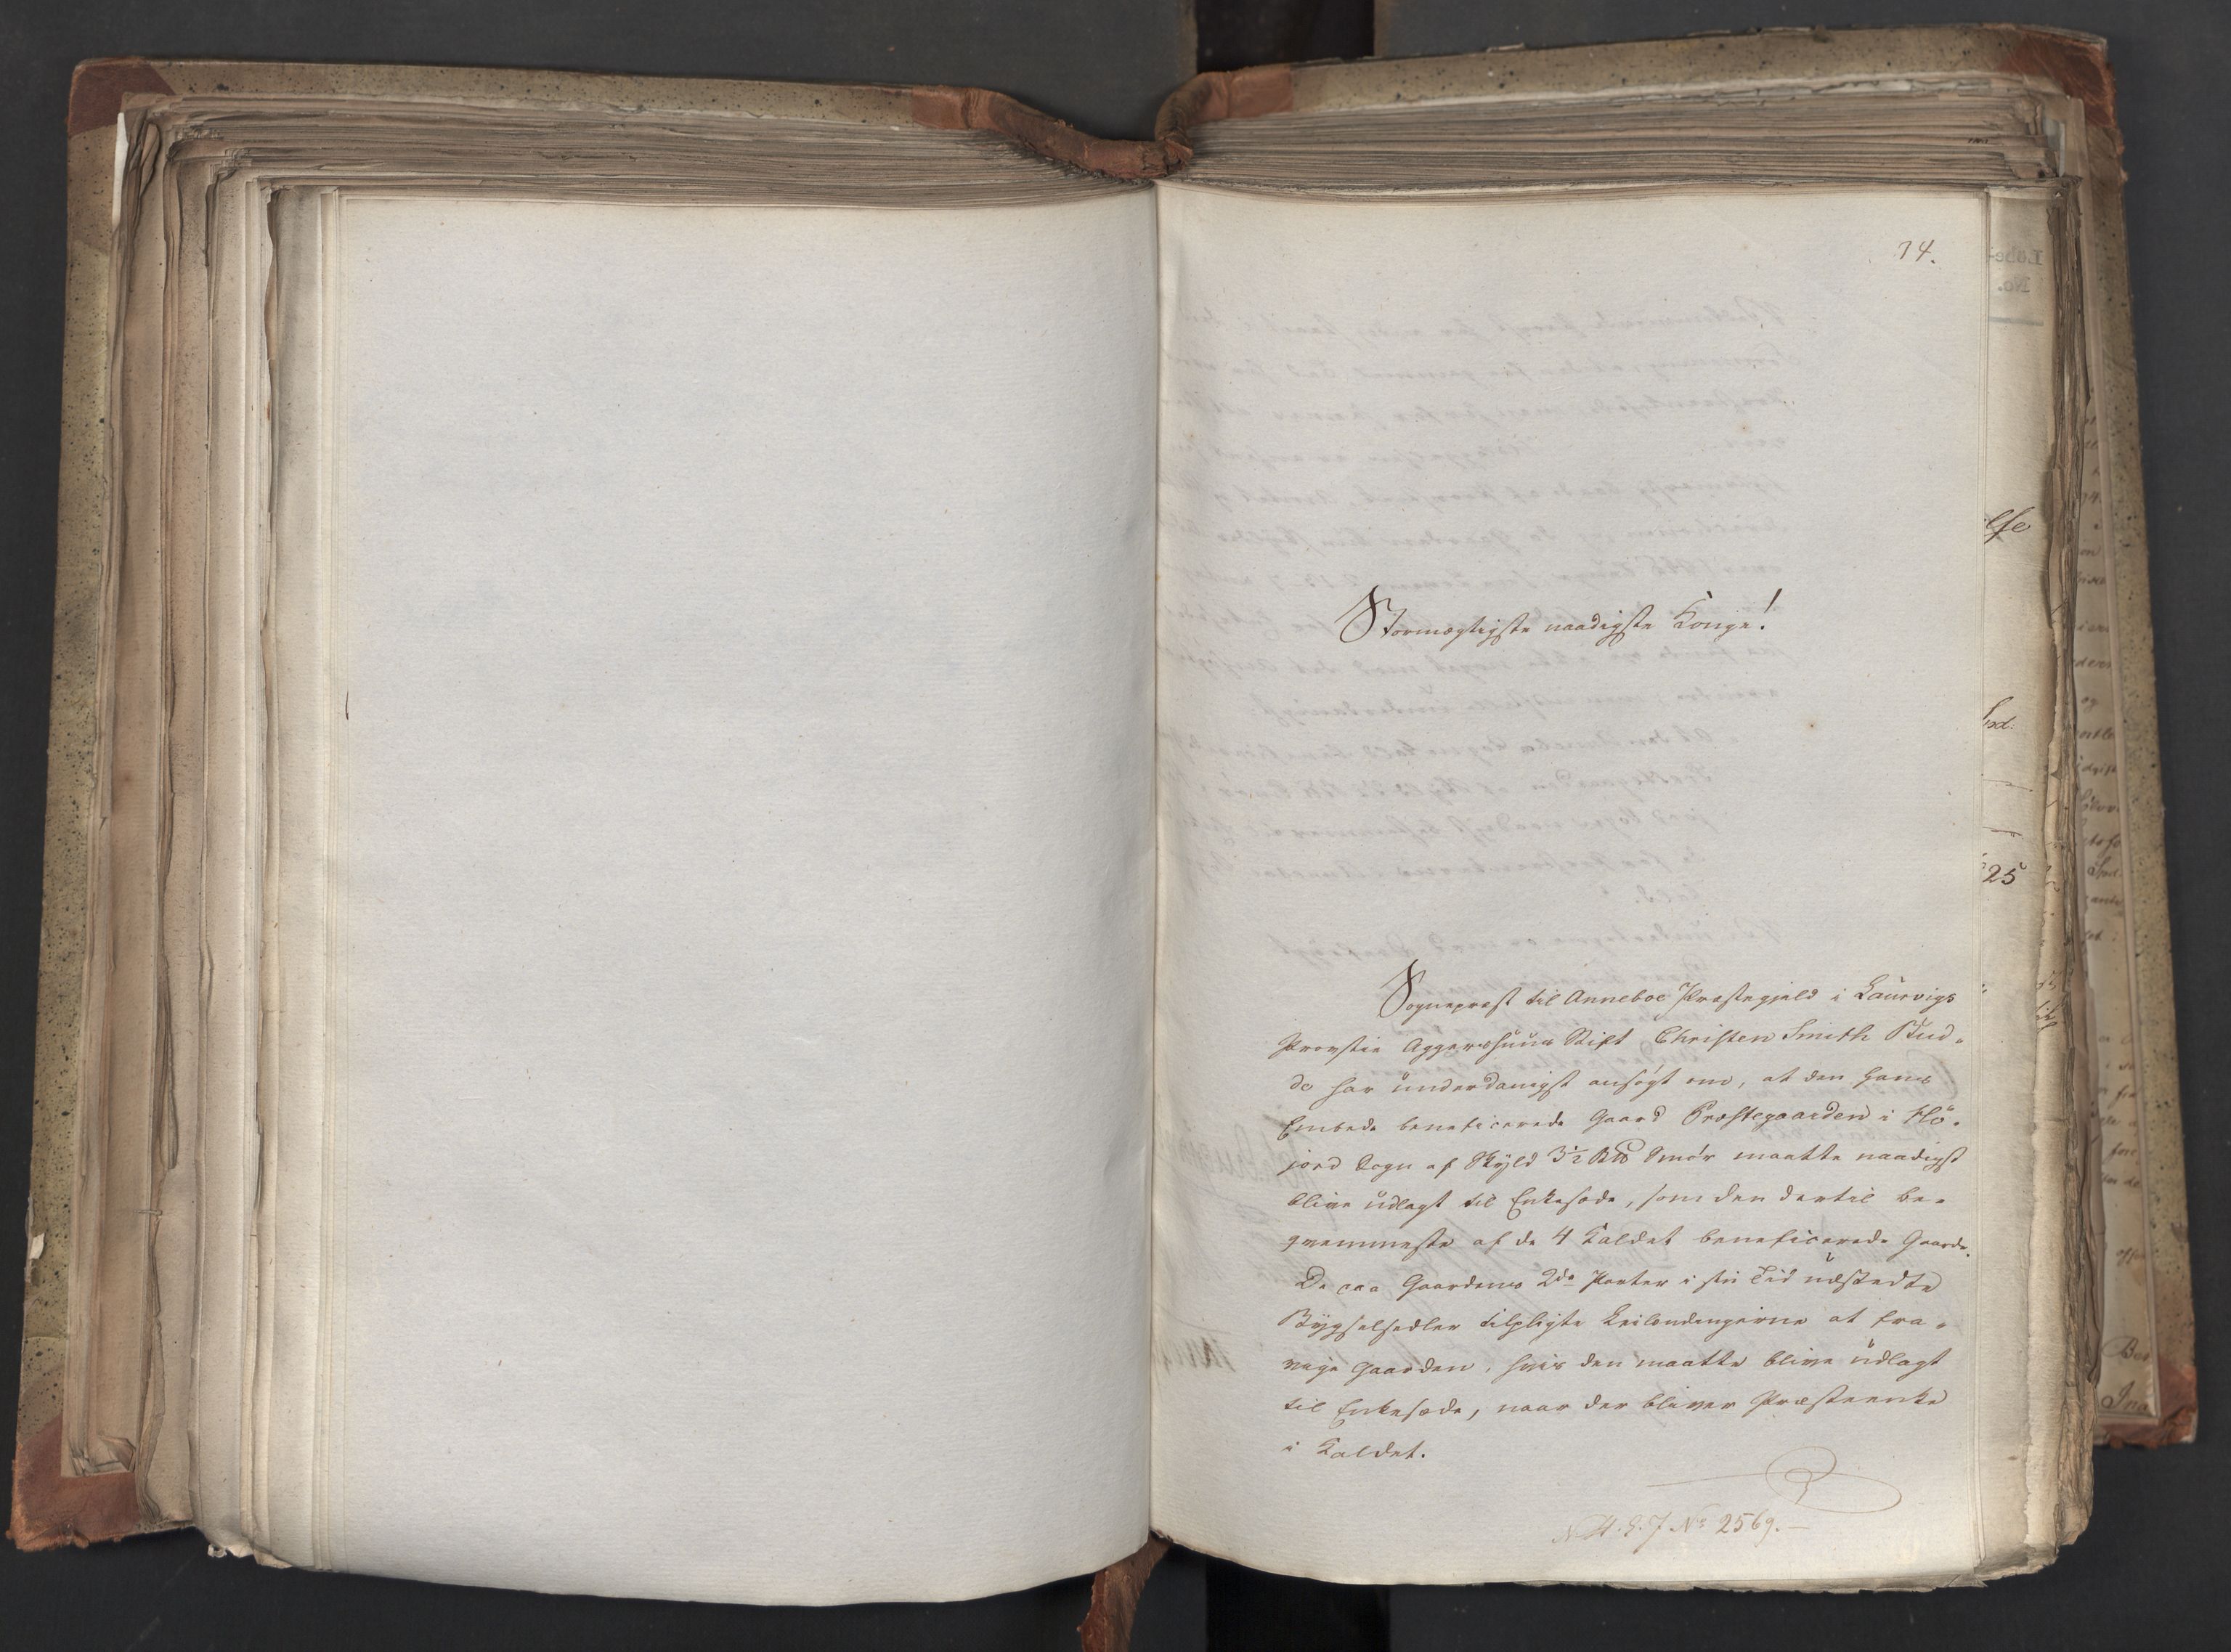 74.
Stormægtigste naadigste Konge!
Sognepræst til Anneboe Præstegjeld i Laurvigs
Provstie Aggershuus Stift Christen Smith Bud-
de har underdanigst ansøgt om, at den hans
Embede beneficerede Gaard Præstegaarden i Hö-
jord Sogn af Skyld 3½ Bpd Smör maatte naadigst
blive udlagt til Enkesæde, som den dertil be-
qvemmeste af de 4 Kaldet beneficerede Gaarde.
De paa Gaardens 2de Parter i sin Tid udstedte
Bygselsedler tilpligte Leilændingerne at fra-
vige Gaarden, hvis den maatte blive udlagt
til Enkesæde, naar der bliver Præsteenke
i Kaldet.
No 2569.
Löbe-
No.
lse
25